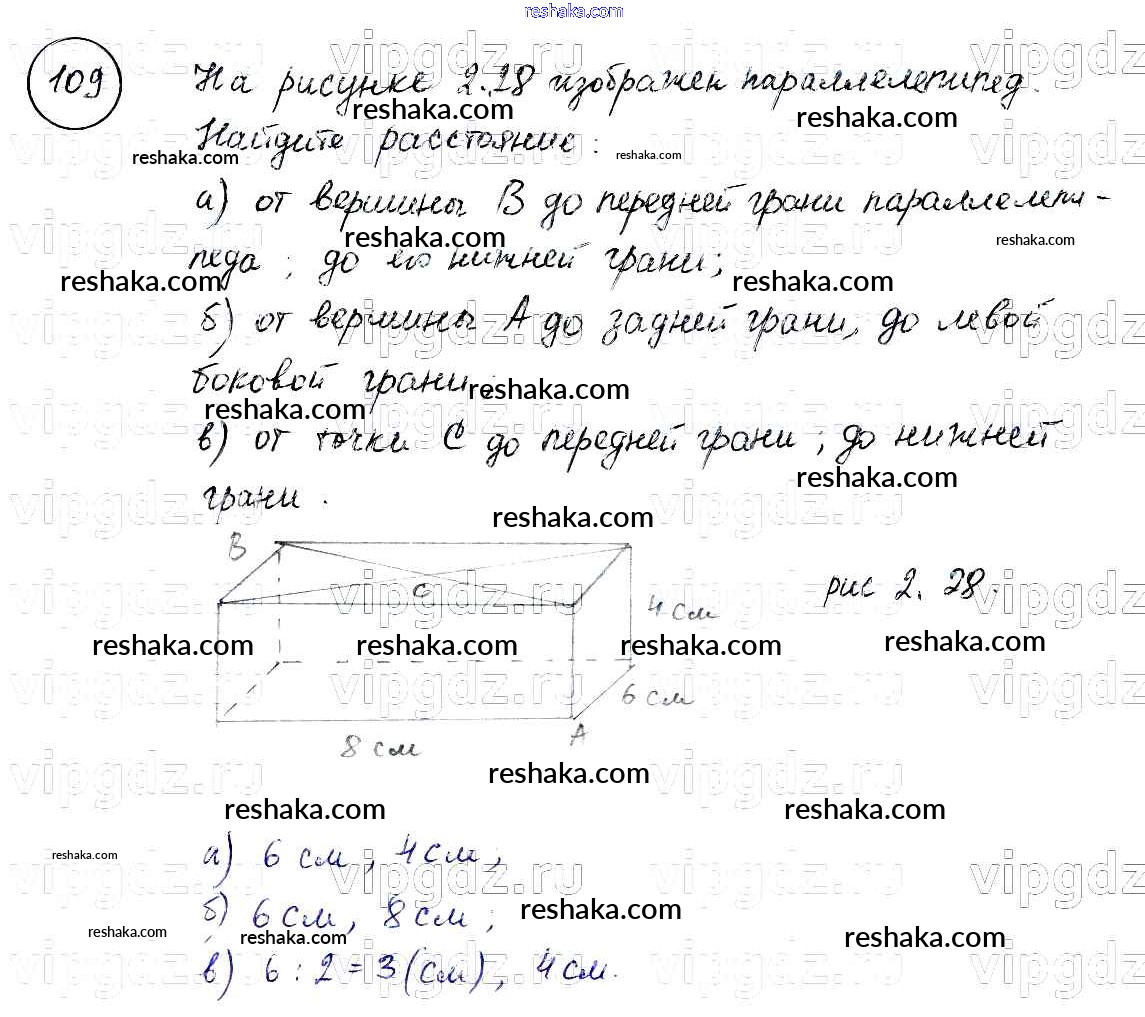 reshaka.com
109 На рисунке 2.28 изображен параллелепипед.
Найдите расстояние:
а) от вершины В до передней грани параллелепи-
педа; до его нижней грани;
б) от вершины А до задней грани, до левой
боковой грани;
в) от точки С до передней грани; до нижней
грани.
В
С
4 см
рис 2.28.
6 см
8 см
А
а) 6 см, 4 см;
б) 6 см, 8 см;
в) 6 : 2 = 3 (см), 4 см.
vipgdz.ru